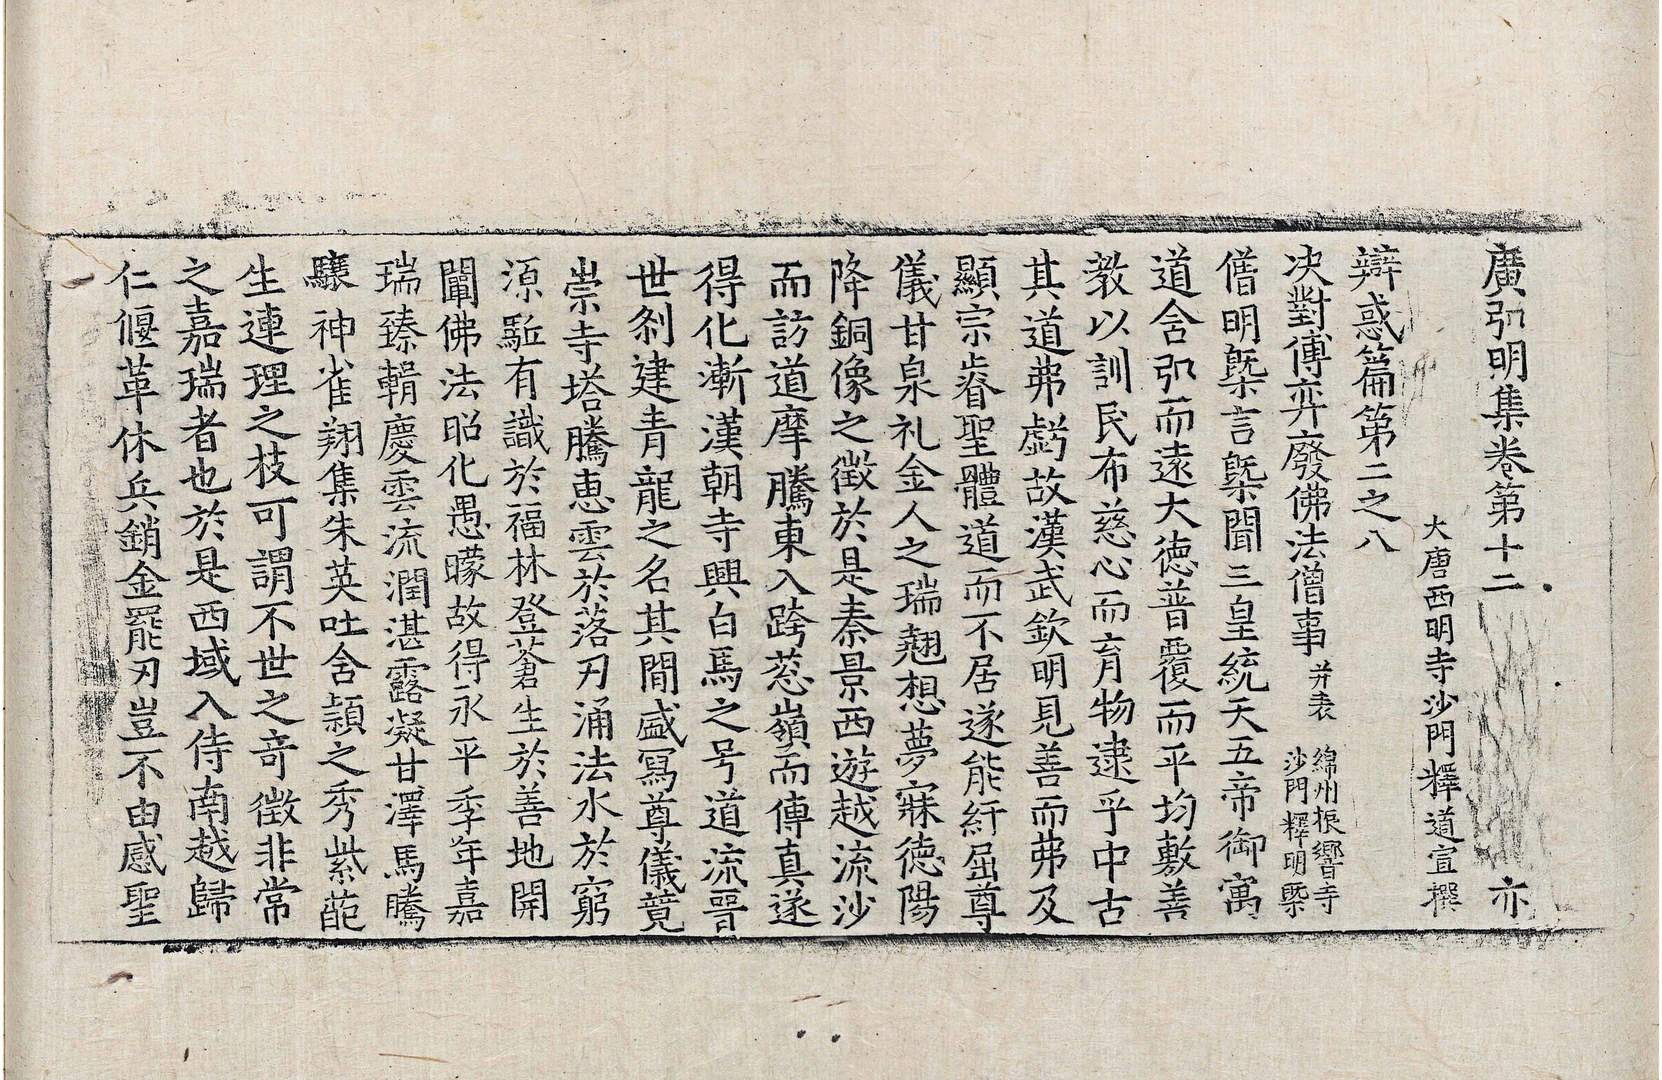 廣弘明集卷第十二　亦
大唐西明寺沙門釋道宣撰
辯惑篇第二之八
决對傅弈廢佛法僧事并表 綿州振響寺沙門釋明槩
僧明槩言槩聞三皇統天五帝御寓
道含弘而遠大德普覆而平均敷善
教以訓民布慈心而育物逮乎中古
其道弗虧故漢武欽明見善而弗及
顯宗睿聖體道而不居遂能紆屈尊
儀甘泉礼金人之瑞翹想夢寐德陽
降銅像之徵於是秦景西遊越流沙
而訪道摩騰東入跨葱嶺而傳真遂
得化漸漢朝寺興白馬之号道流晉
世剎建青龍之名其間盛寫尊儀競
崇寺塔騰惠雲於落刃涌法水於窮
源駈有識於福林登蒼生於善地開
闡佛法昭化愚曚故得永平季年嘉
瑞臻輯慶雲流潤湛露凝甘澤馬騰
驤神雀翔集朱英吐含頴之秀紫葩
生連理之枝可謂不世之竒徵非常
之嘉瑞者也於是西域入侍南越歸
仁偃革休兵銷金罷刃豈不由感聖